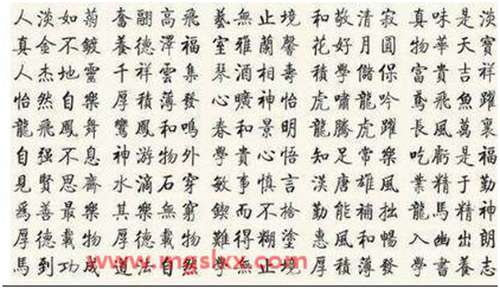 人淡如菊 奮翮高飛 藝無止境 和敬清寂 真味是淡
真金不鍍 養德澤福 室雅蘭馨 花好月圓 物華天寶
人杰地靈 千祥雲集 酒相壽 積學儲保 富貴吉祥
怡然自樂 厚積薄發 心曠神怡 虎嘯龍吟 鳶飛魚躍
龍飛鳳舞 鸞鳳和鳴 春和景明 龍騰虎躍 長風萬裏
自强不息 神游物外 貴心悟 知足常樂 吃虧是福
見賢思齊 水滴石穿 敏事慎言 漢唐雄風 業精于勤
爲善最樂 其樂無窮 鍥而不捨 勤能補拙 龍馬精神
厚德載物 厚德載物 難得糊塗 惠風和暢 入幽出朗
馬到功成 道法自然 學無止境 厚積薄發 學書養志
www.mgslxx.com